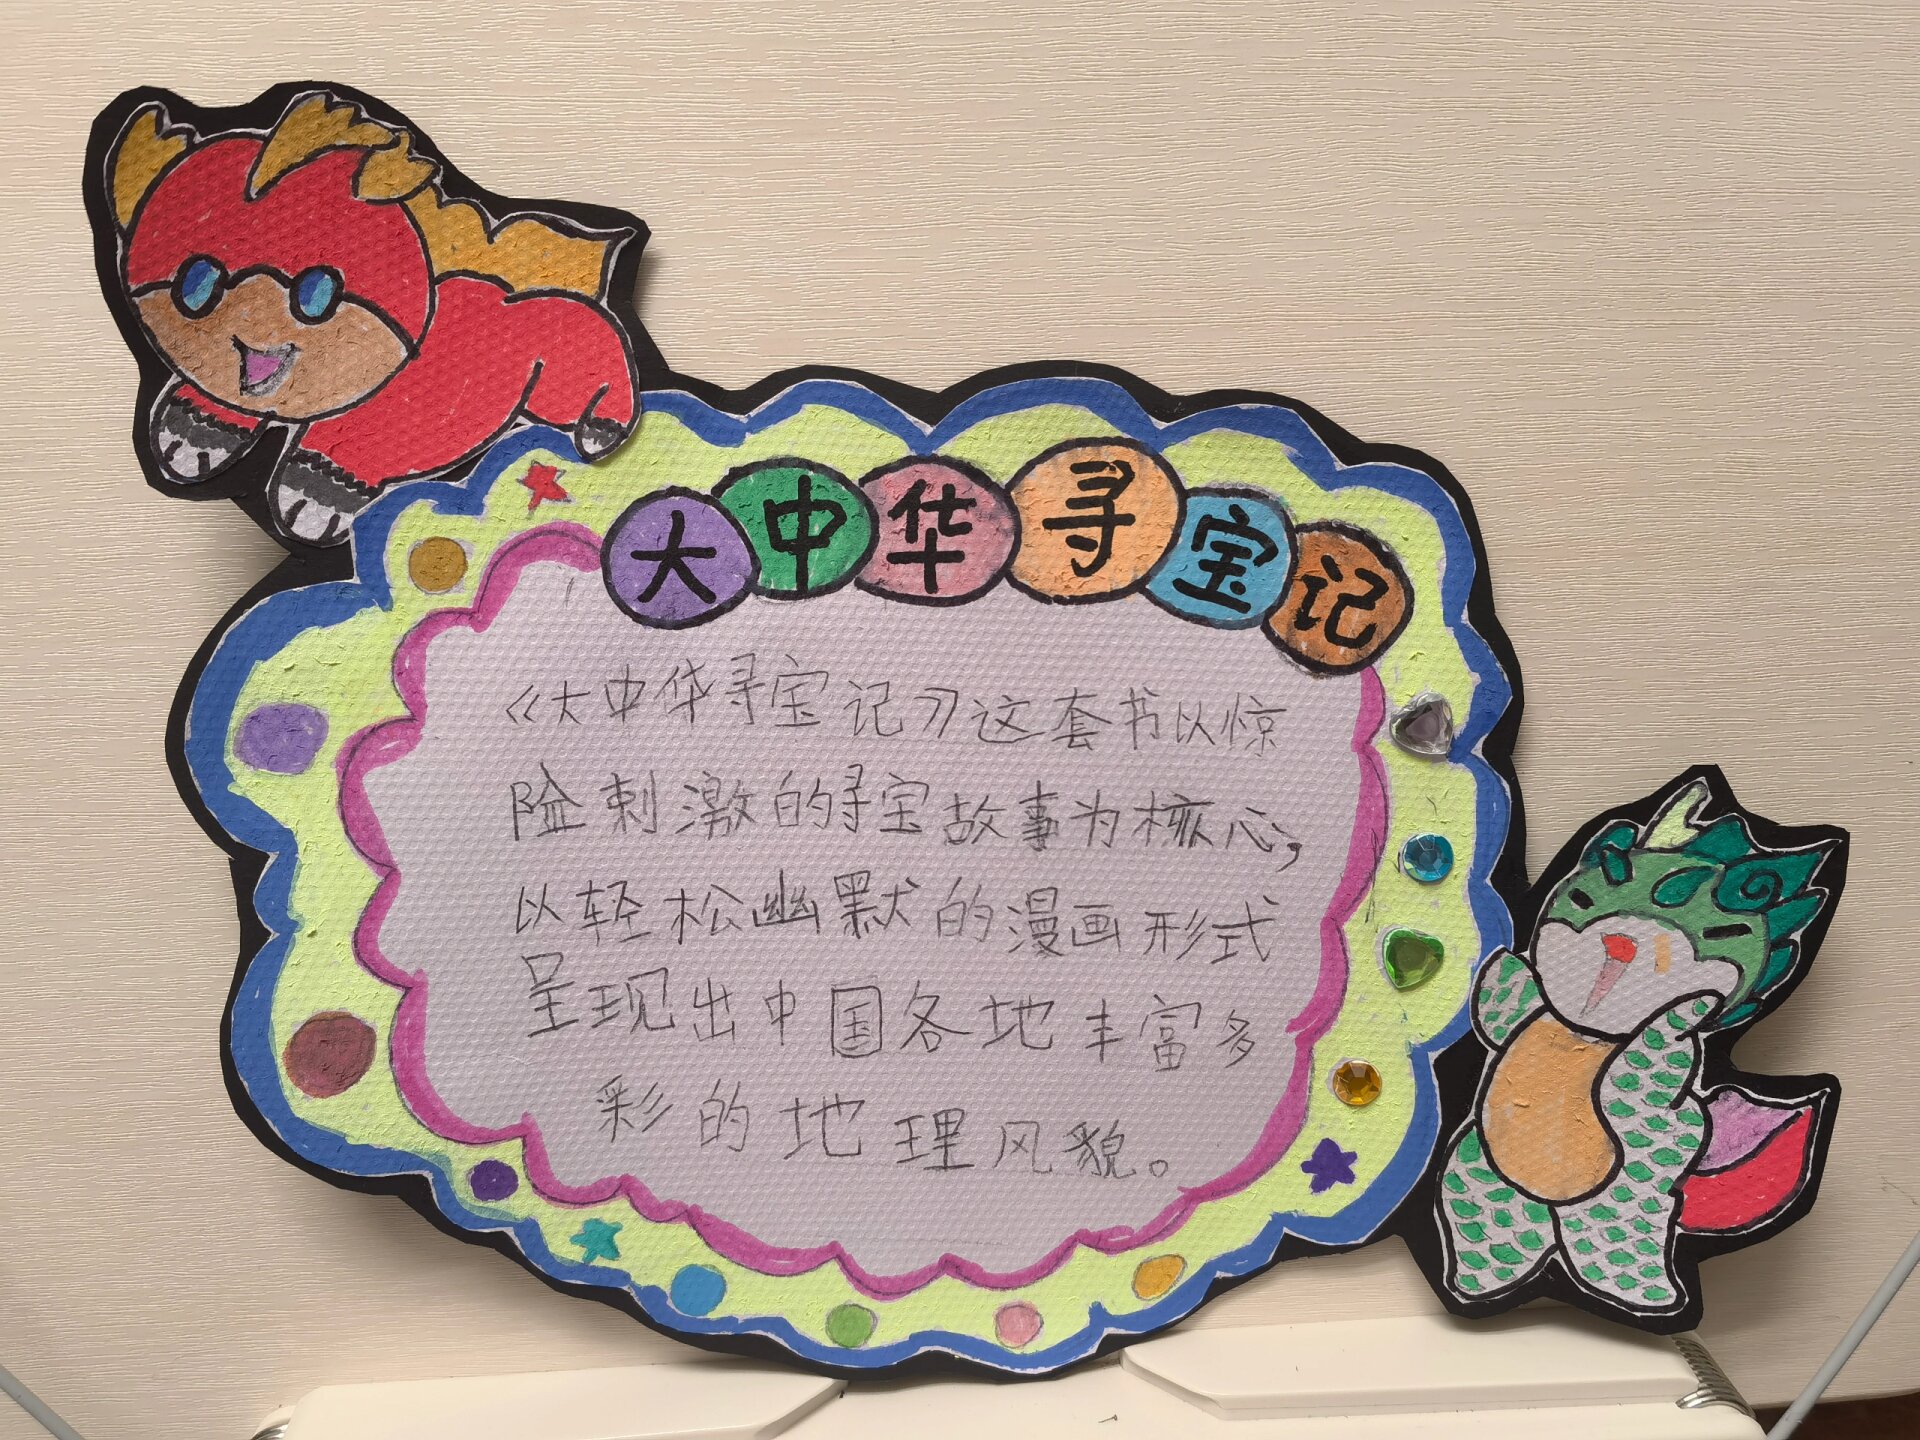 大中华寻宝记
《大中华寻宝记》这套书以惊
险刺激的寻宝故事为核心，
以轻松幽默的漫画形式
呈现出中国各地丰富多
彩的地理风貌。